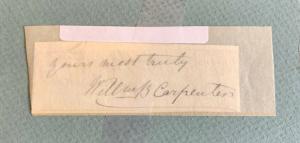 yours most truly
Willm B Carpenter